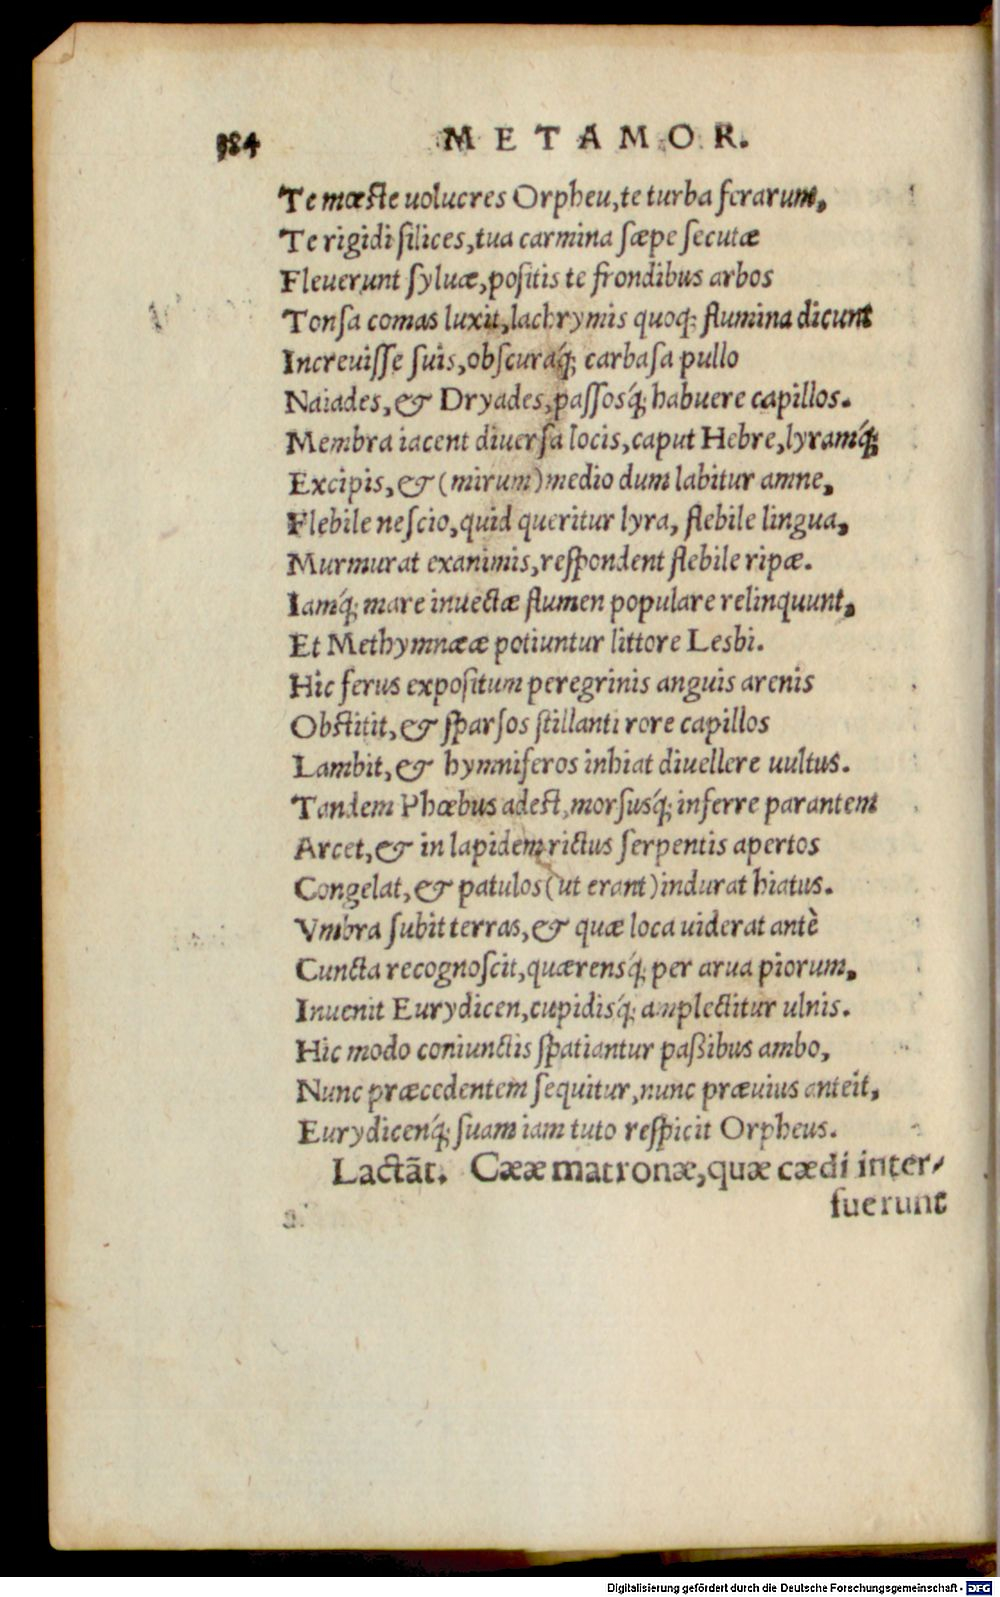 384 METAMOR.
Te mœste uolucres Orpheu, te turba ferarum,
Te rigidi ſilices, tua carmina ſæpe ſecutæ
Fleuerunt ſyluæ, poſitis te frondibus arbos
Tonſa comas luxit, lachrymis quoq; flumina dicunt
Increuiſſe ſuis, obſcuraq́; carbaſa pullo
Naiades, & Dryades, paſſosq́; habuere capillos.
Membra iacent diuerſa locis, caput Hebre, lyramq́;
Excipis, & (mirum) medio dum labitur amne,
Flebile neſcio, quid queritur lyra, flebile lingua,
Murmurat exanimis, reſpondent flebile ripæ.
Iamq́; mare inuectæ flumen populare relinquunt,
Et Methymnææ potiuntur littore Lesbi.
Hic ferus expoſitum peregrinis anguis arenis
Obſtitit, & ſparſos ſtillanti rore capillos
Lambit, & hymniferos inhiat diuellere uultus.
Tandem Phœbus adeſt, morſusq́; inferre parantem
Arcet, & in lapidem rictus ſerpentis apertos
Congelat, & patulos (ut erant) indurat hiatus.
Vmbra ſubit terras, & quæ loca uiderat antè
Cuncta recognoſcit, quærensq́; per arua piorum,
Inuenit Eurydicen, cupidisq́; amplectitur ulnis.
Hic modo coniunctis ſpatiantur paßibus ambo,
Nunc præcedentem ſequitur, nunc præuius anteit,
Eurydicenq́; ſuam iam tuto reſpicit Orpheus.
Lactāt. Cææ matronæ, quæ cædi inter-
fuerunt
Digitalisierung gefördert durch die Deutsche Forschungsgemeinschaft - DFG